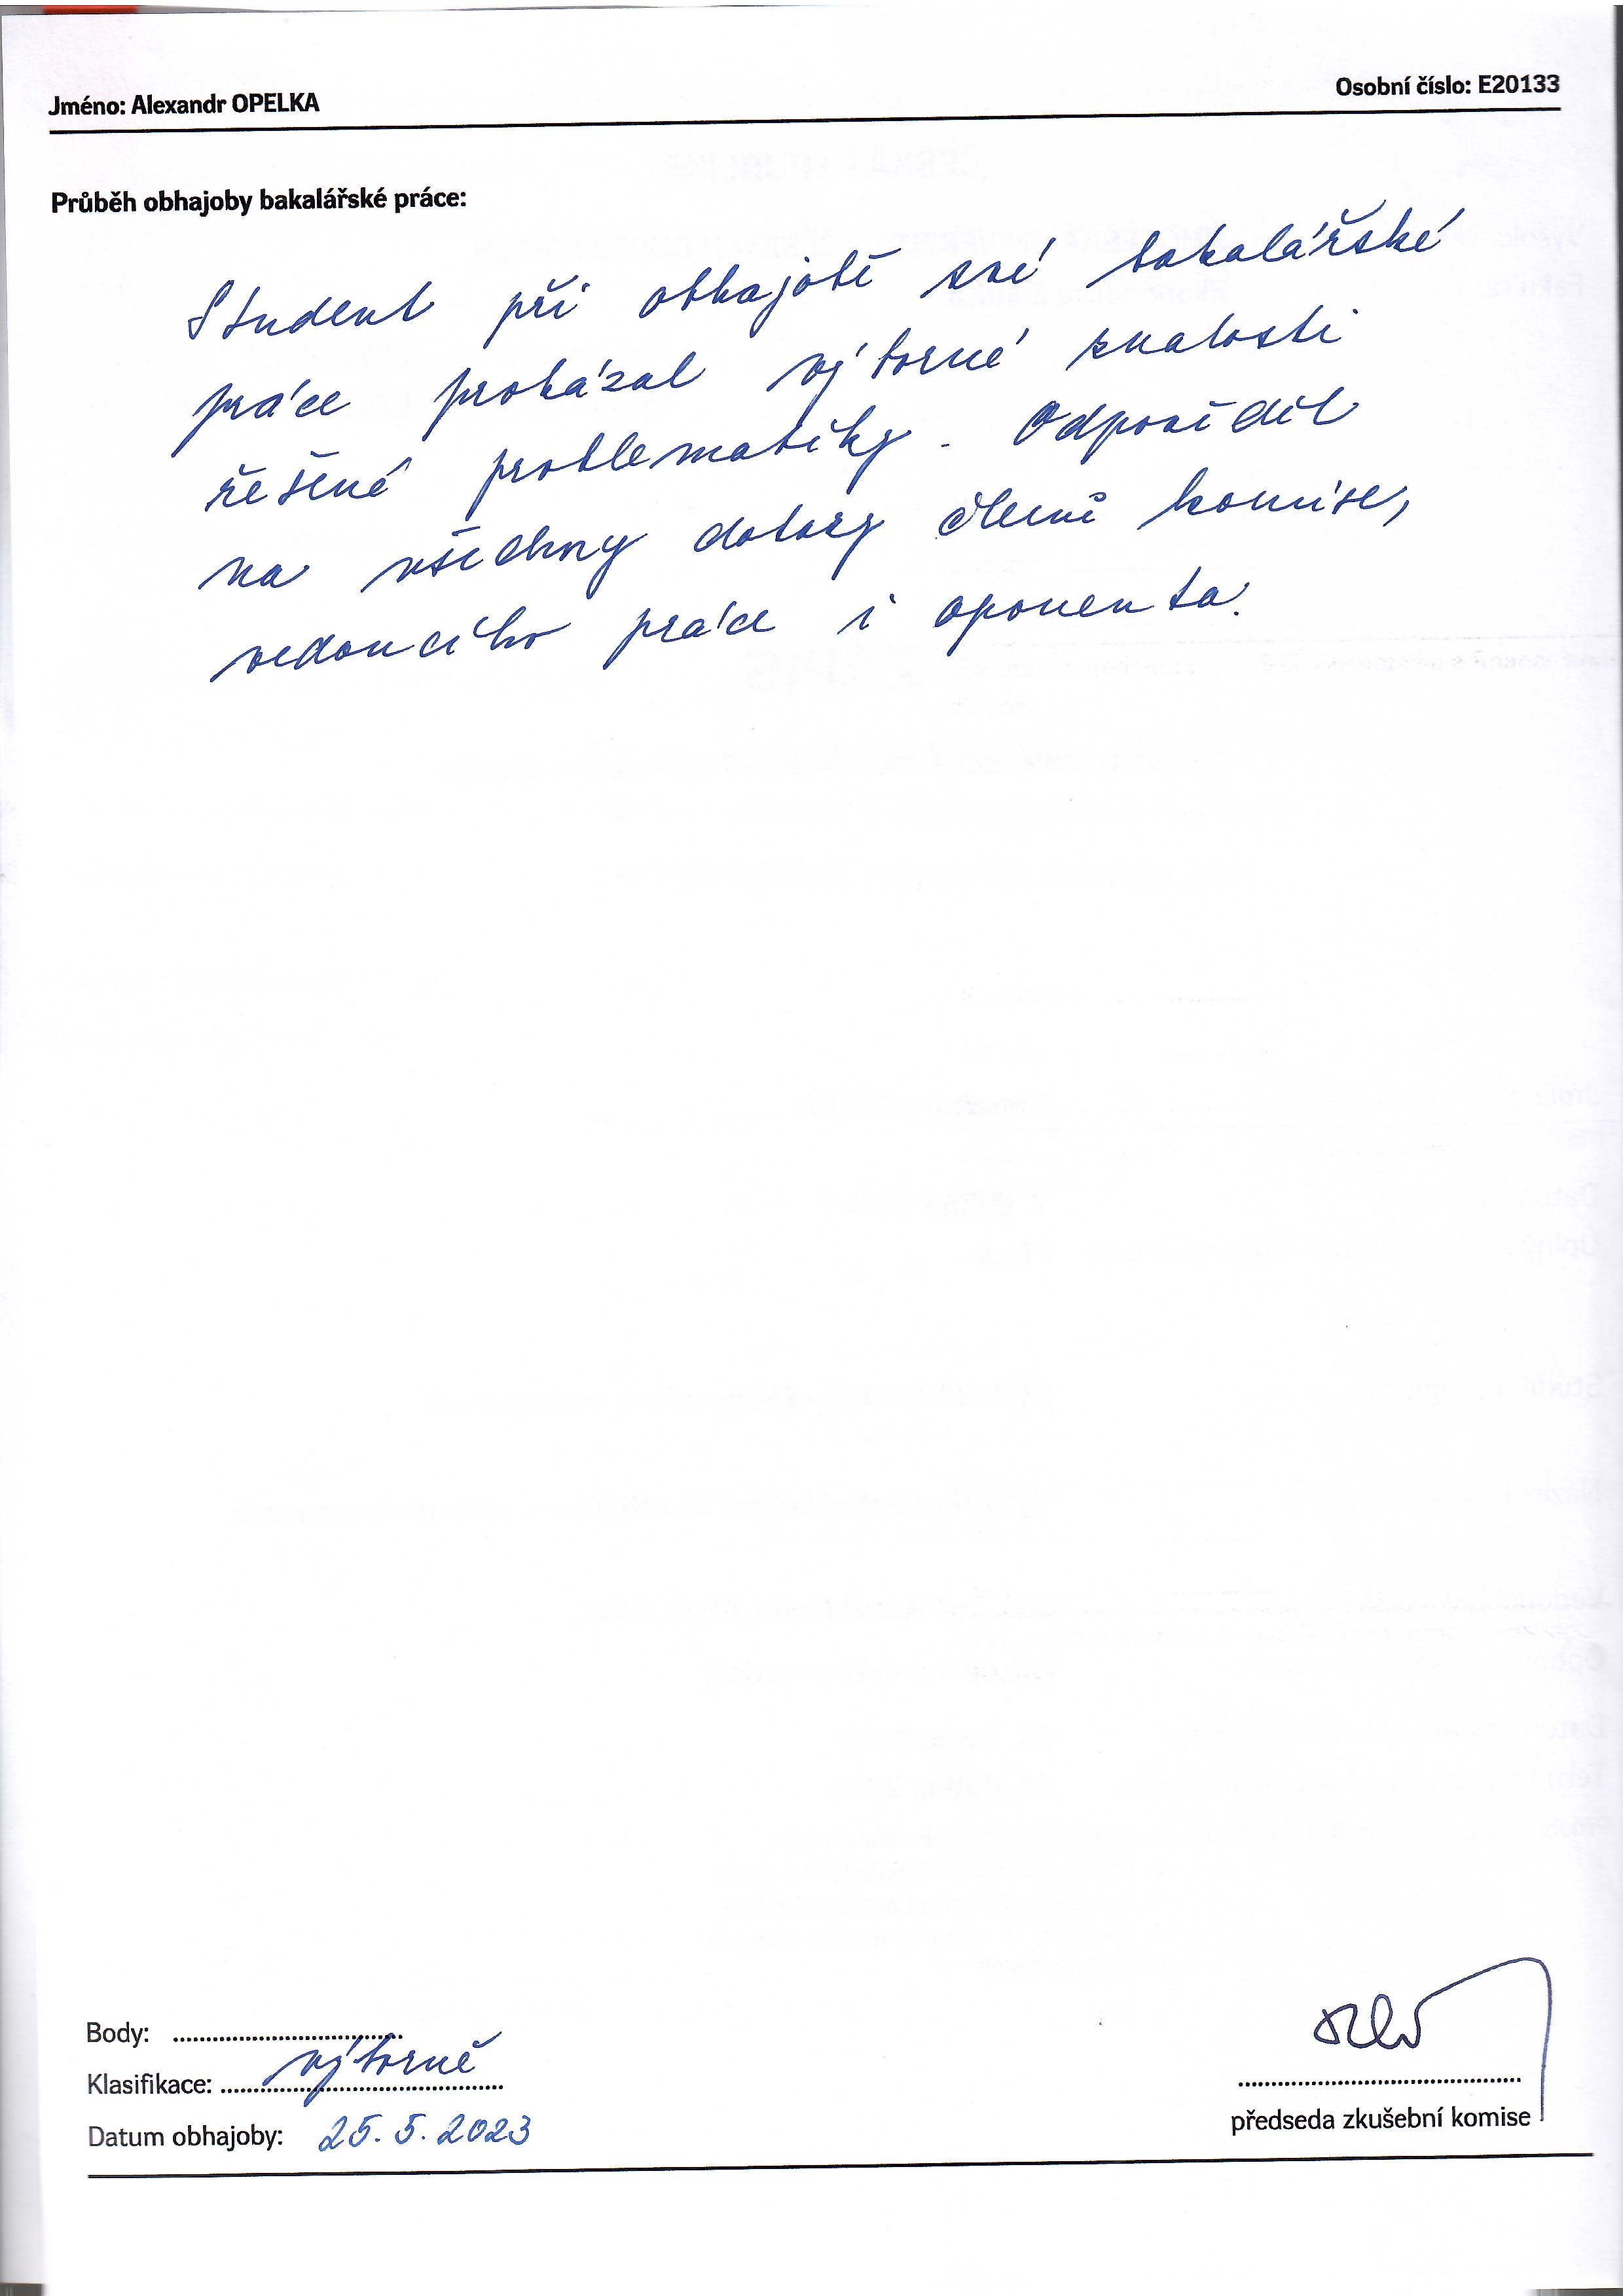 Jméno: Alexandr OPELKA
Osobní číslo: E20133
Průběh obhajoby bakalářské práce:
Student při obhajobě své bakalářské
práce prokázal výborné znalosti
řešené problematiky. Odpověděl
na všechny dotazy členů komise,
vedoucího práce i oponenta.
Body: ........................................
Klasifikace: výborně
Datum obhajoby: 25. 5. 2023
předseda zkušební komise